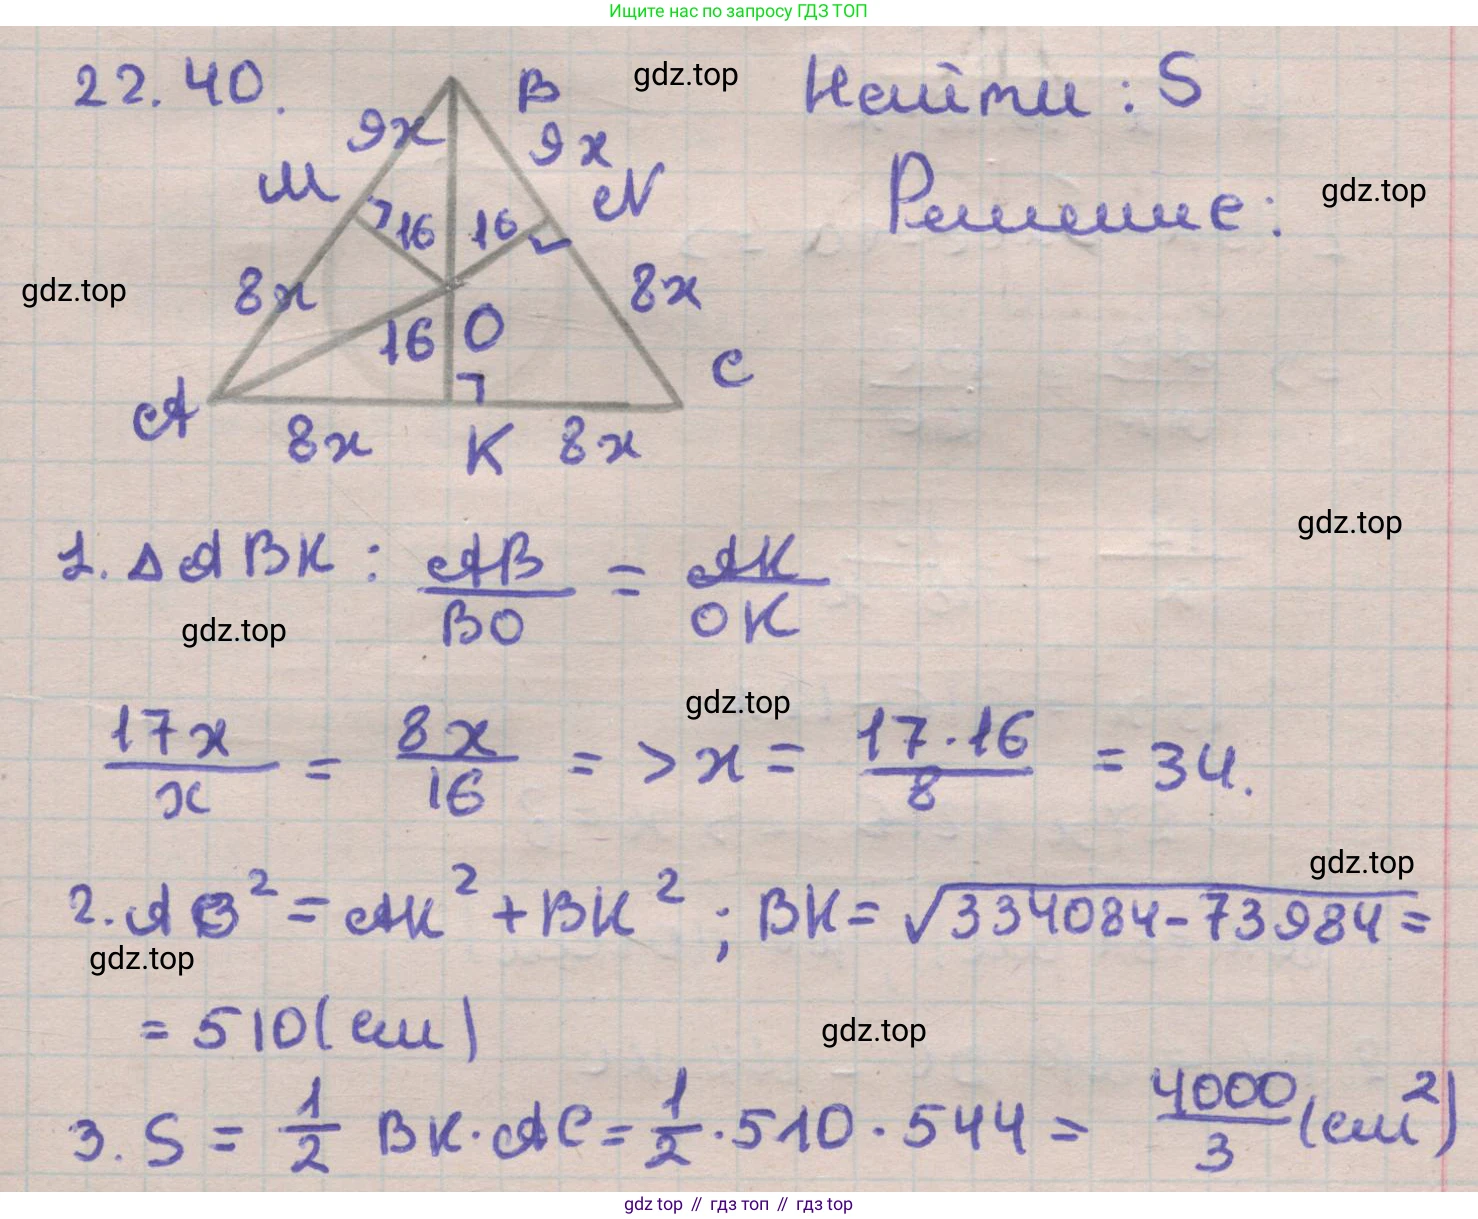 Ищите нас по запросу ГДЗ ТОП
22.40.
B
gdz.top
Найти: S
9x
9x
M
N
gdz.top
Решение:
16
16
gdz.top
8x
8x
16
O
C
A
8x
K
8x
gdz.top
1. ΔABK: AB/BO = AK/OK
gdz.top
gdz.top
17x/x = 8x/16 => x = 17·16/8 = 34.
gdz.top
2. AB² = AK² + BK²; BK = √334084-73984 =
gdz.top
= 510 (см)
gdz.top
3. S = 1/2 BK·AC = 1/2 · 510 · 544 = 4000/3 (см²)
gdz top // гдз топ // гдз top